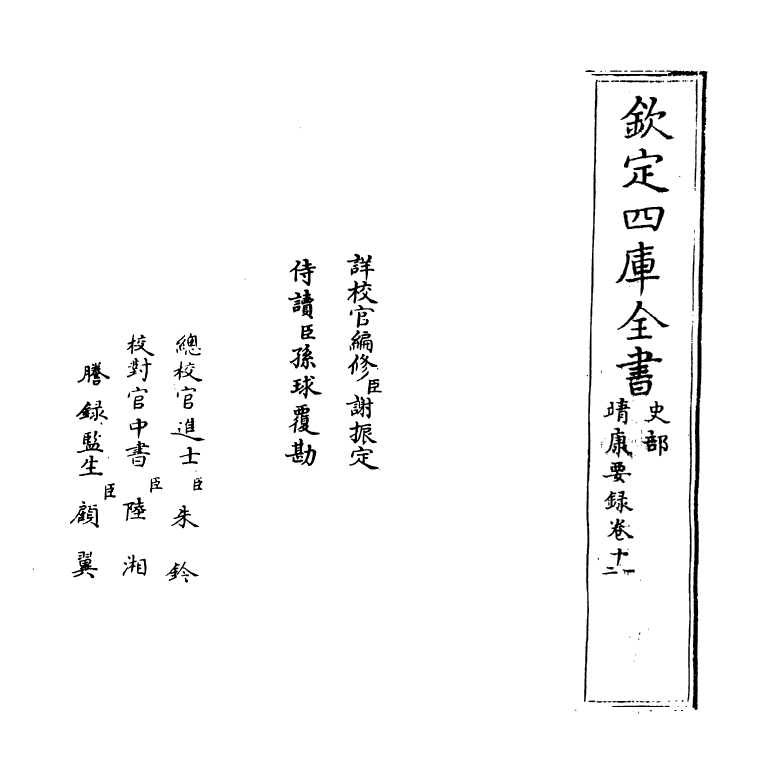 欽定四庫全書
史部
靖康要録卷十一二
詳校官編修臣謝振定
侍讀臣孫球覆勘
總校官進士臣朱鈐
校對官中書臣陸湘
謄録監生臣顧翼